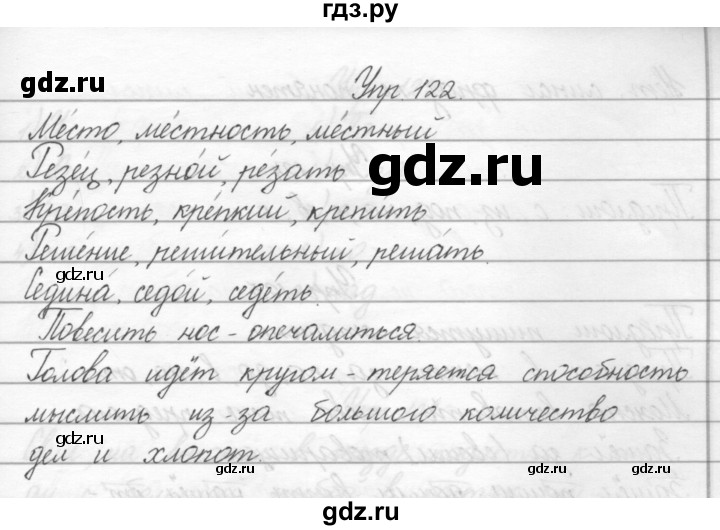 гдз.ру
gdz.ru
Упр. 122
Ме́сто, ме́стность, ме́стный
Резе́ц, резно́й, ре́зать
gdz.ru
Кре́пость, кре́пкий, крепить
Реше́ние, реши́тельный, реша́ть.
gdz.ru
gdz.ru
Седина́, седо́й, седе́ть.
Повесить нос - опечалиться
Голова идёт кругом - теряется способность
мыслить из-за большого количество
gdz.ru
дел и хлопот.
gdz.ru
gdz.ru
gdz.ru
gdz.ru